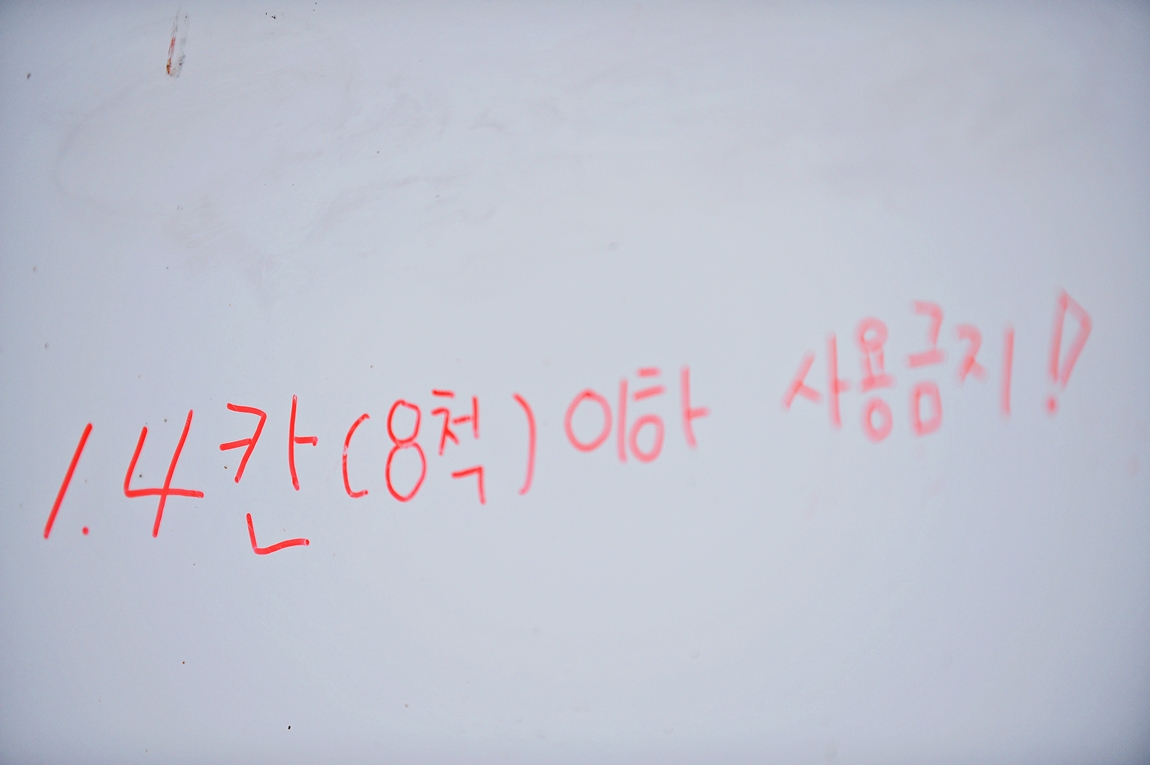 1. 4칸(8척) 이하 사용금지!